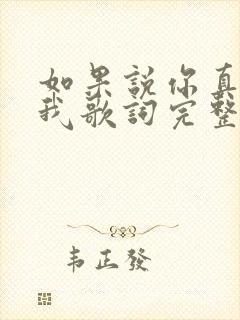 如果說你真
我歌詞完整
韦正發